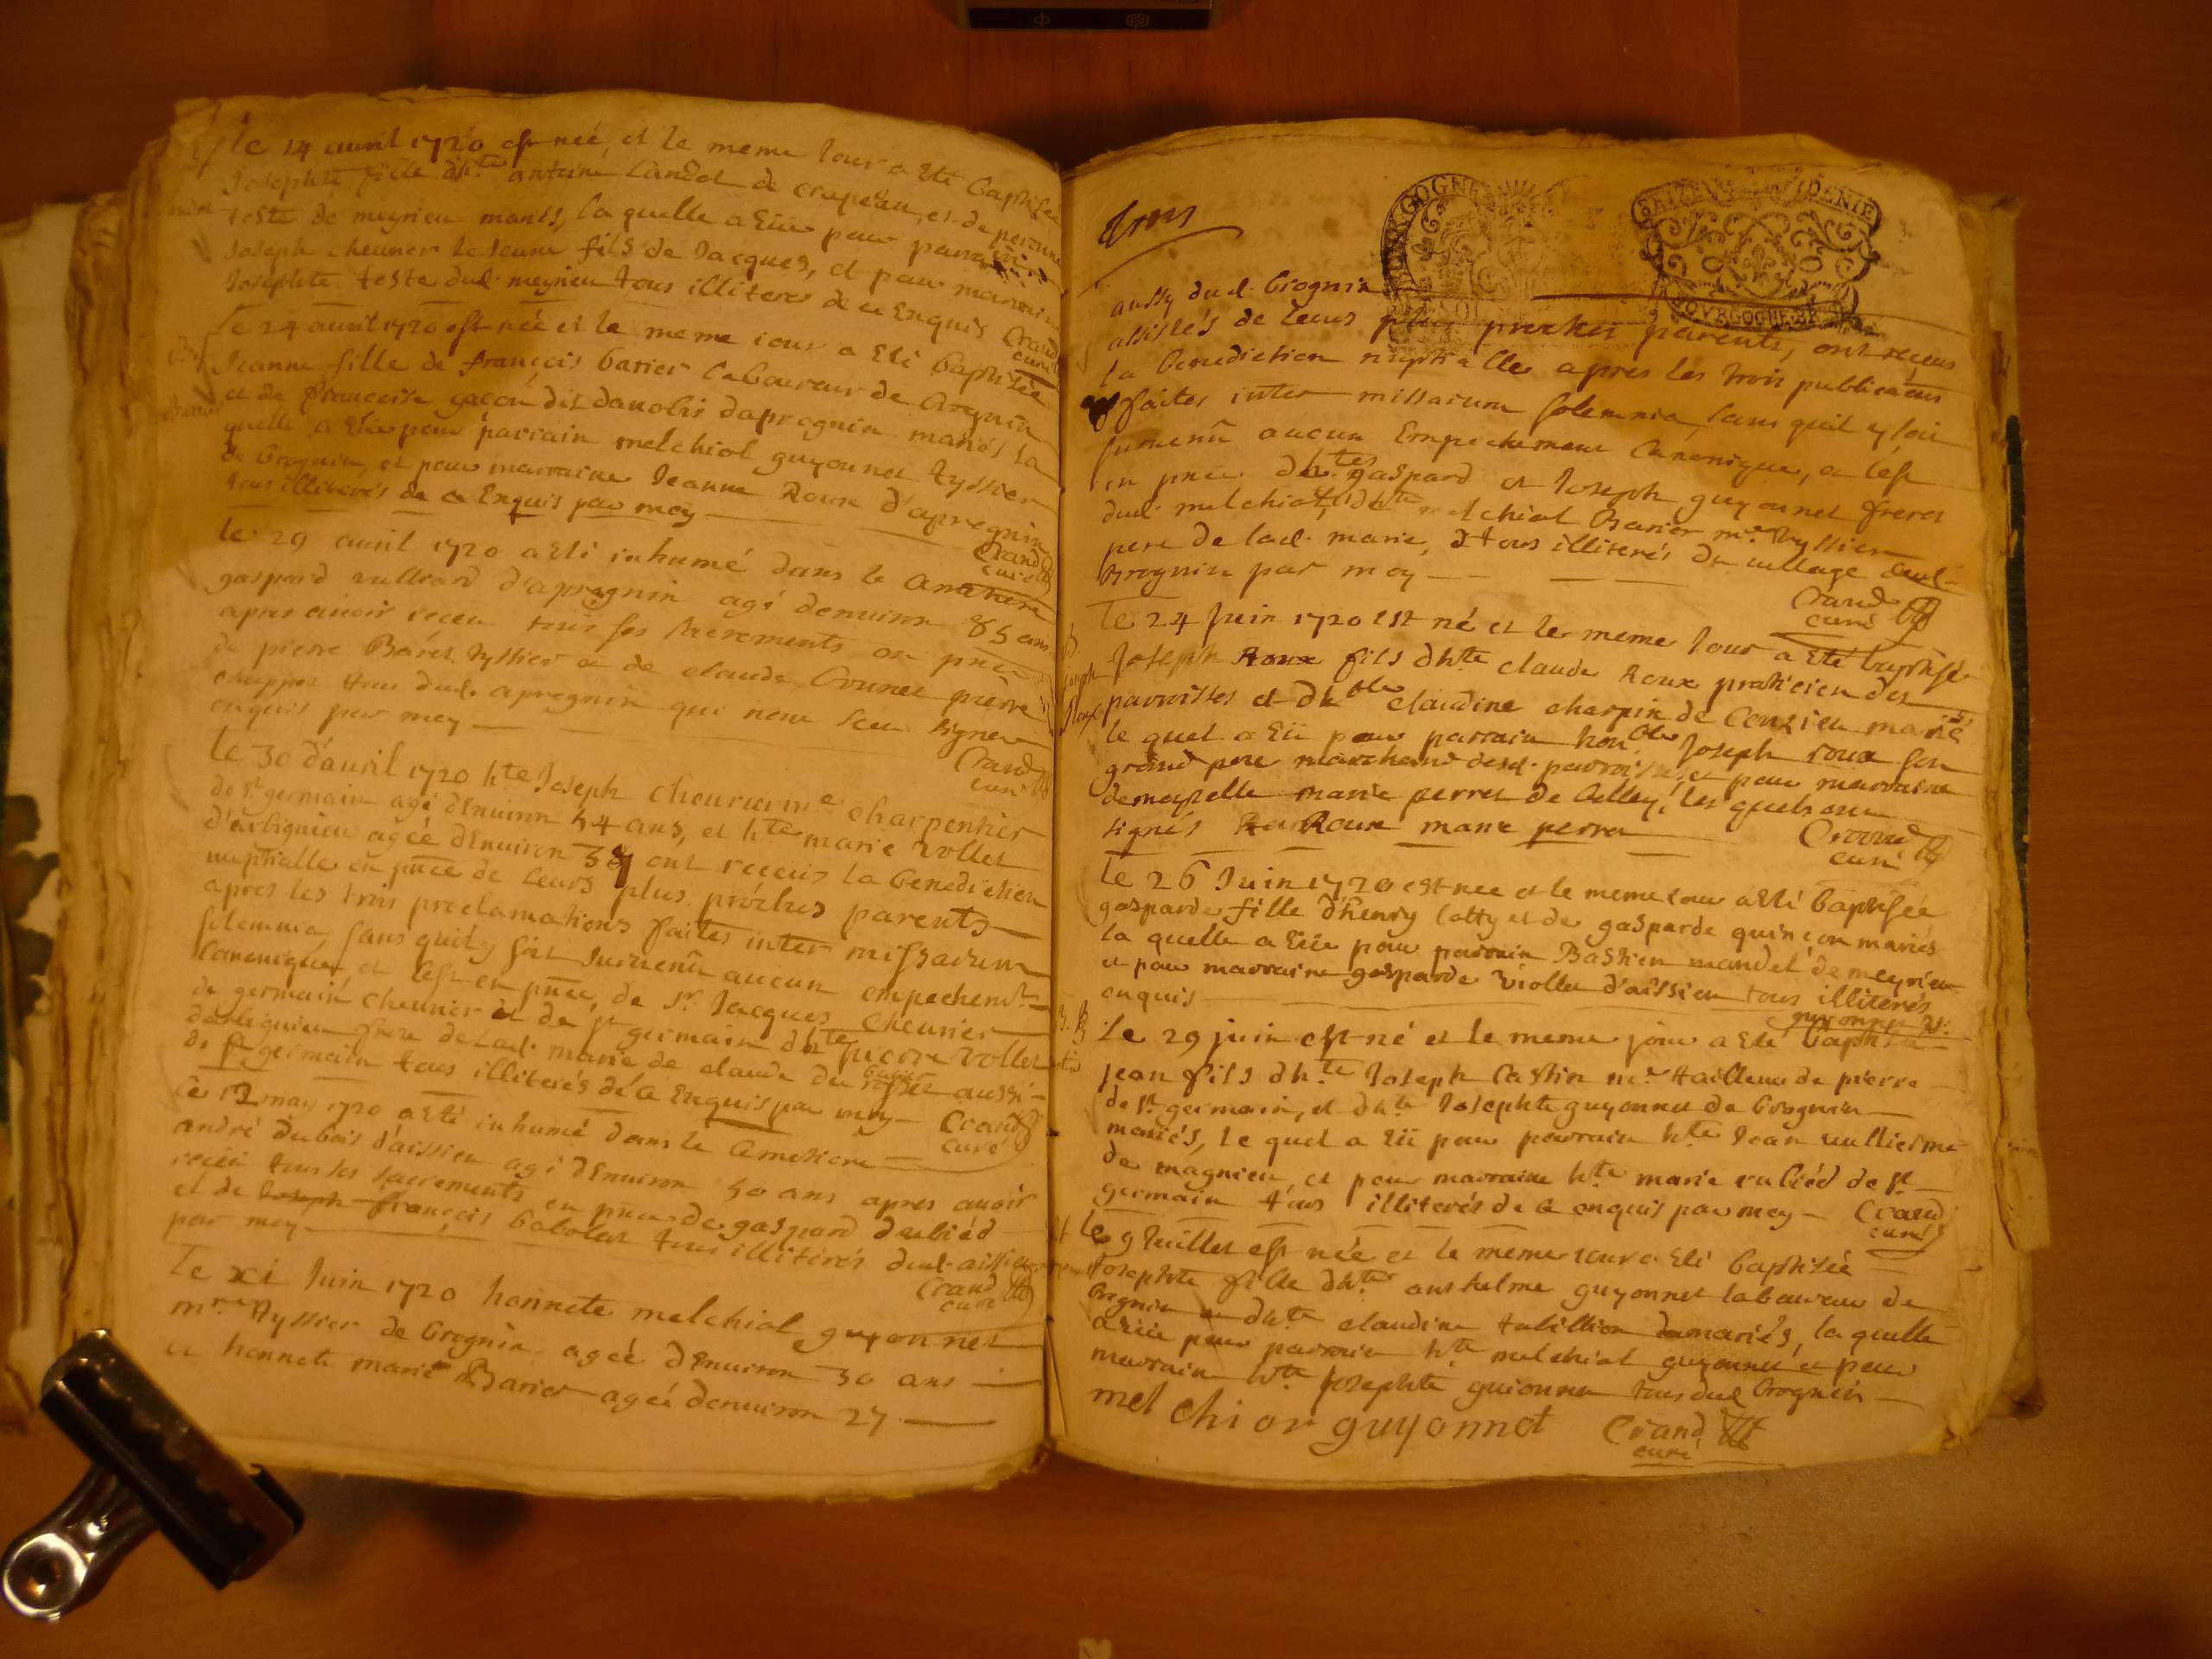 le 14 avril 1720 est neé, et le meme iour a Eté baptisée
Josephte fille dh.te antoine landet de crapeau, et de perrine
teste de meyrieu mariés, la quelle a Eüe pour parrain
Joseph cheurier le Jeune fils de Jacques, et pour marraine
Josephte teste dud. meyrieu tous illiterés de ce Enquis Crand
curé
le 24 avril 1720 est neé et le meme iour a Eté baptisée
Jeanne fille de françois barier laboureur de brognin
et de francoise gaçon dit danolis dapregnin mariés la
quelle a Eüe pour parrain melchiol guyonnet tyssier
de brognin, et pour marraine Jeanne Roux d'apregnin
tous illiterés de ce Enquis par moy
Crand
curé
le 29 avril 1720 a Eté inhumé dans le cimetiere
gaspard vulliard d'apregnin agé denuiron 85 ans
apres auoir receu tous ses sacrements en pnce
de pierre Baret tyssier et de claude bonnet pierre
chappet tous dud. apregnin qui n'ont sceu signer
enquis par moy
Crand
curé
le 30 d'auril 1720 h.te Joseph cheurier m.e charpentier
de st germain agé dEnuiron 54 ans, et h.te marie vollet
d'arbignieu ageé dEnuiron 38 ont receus la benediction
nuptialle en pnce de leurs plus proches parents
apres les trois proclamations faites inter missarum
solemnia, sans quil y soit suruenû aucun empechemt
canonique, et cest en pnce, de sr. Jacques cheurier
de germain cheurier et de st germain dh.te pierre vollet
darbignieu frere de lad. marie de claude du aussi
de st germain tous illiterés de ce Enquis par moy Crand
curé
le 12 may 1720 a Eté inhumé dans le cimetiere
andré dubois daissieu agé dEnuiron 50 ans apres auoir
receu tous les sacrements en pnce de gaspard dubiéd
et de Joseph françois babolat tous illiterés dud. aissieu
par moy
Crand
curé
le xi Juin 1720 honnete melchiol guyonnet
m.re tyssier de brognin ageé dEnuiron 30 ans
et honnete marie Barier ageé denuiron 27
trois
BOURGOGNE
GENE
BOVRGOGNE BR
aussy dud. brognin
assistés de leurs plus proches parents, ont receus
la benediction nuptialle apres les trois publicaons
faites inter missarum solemnia, sans quil y soit
suruenû aucun Empechement Canonique, et cest
en pnce dh.tes gaspard et Joseph guyonnet freres
dud. melchiol, dh.te melchiol Barier m.e tyssier
pere de lad. marie, et tous illiterés du uillage dud.
Brognin par moy
Crand
curé
le 24 Juin 1720 est né et le meme Jour a Eté baptisé
Joseph Roux fils dh.te claude Roux praticien des
parroisses et dh.ble claudine charpin de Conzieu mariés
le quel a Eü pour parrain hon.ble Joseph roux son
grand pere marchand desd. parroisses, et pour marraine
demoyselle marie perret de belley, les quels ont
signés Roux marie perret
Crand
curé
le 26 Juin 1720 est neé et le meme iour a Eté baptisée
gasparde fille d'henry latty et de gasparde quinçon mariés
la quelle a Eüe pour parrain Bastien mandet de meyrieu
et pour marraine gasparde viollet d'aissieu tous illiterés
enquis
Le 29 juin est né et le meme jour a Eté baptisé
jean fils dh.te Joseph Castin m.e tailleur de pierre
de st germain, et dh.te Josephte guyonnet de brognin
mariés, le quel a Eü pour parrain h.te Jean vullierme
de magnieu, et pour marraine h.te marie rubiéd de st
germain tous illiterés de ce enquis par moy Crand
curé
le 9 Juillet est née et le meme iour a Eté baptisée
Josephte fille dh.te anthelme guyonnet laboureur de
brognin et dh.te claudine tabillion mariés, la quelle
a Eüe pour parrain h.te melchiol guyonnet et pour
marraine h.te Josephte guionnet tous dud brognin
mel chior guyonnet Crand
curé